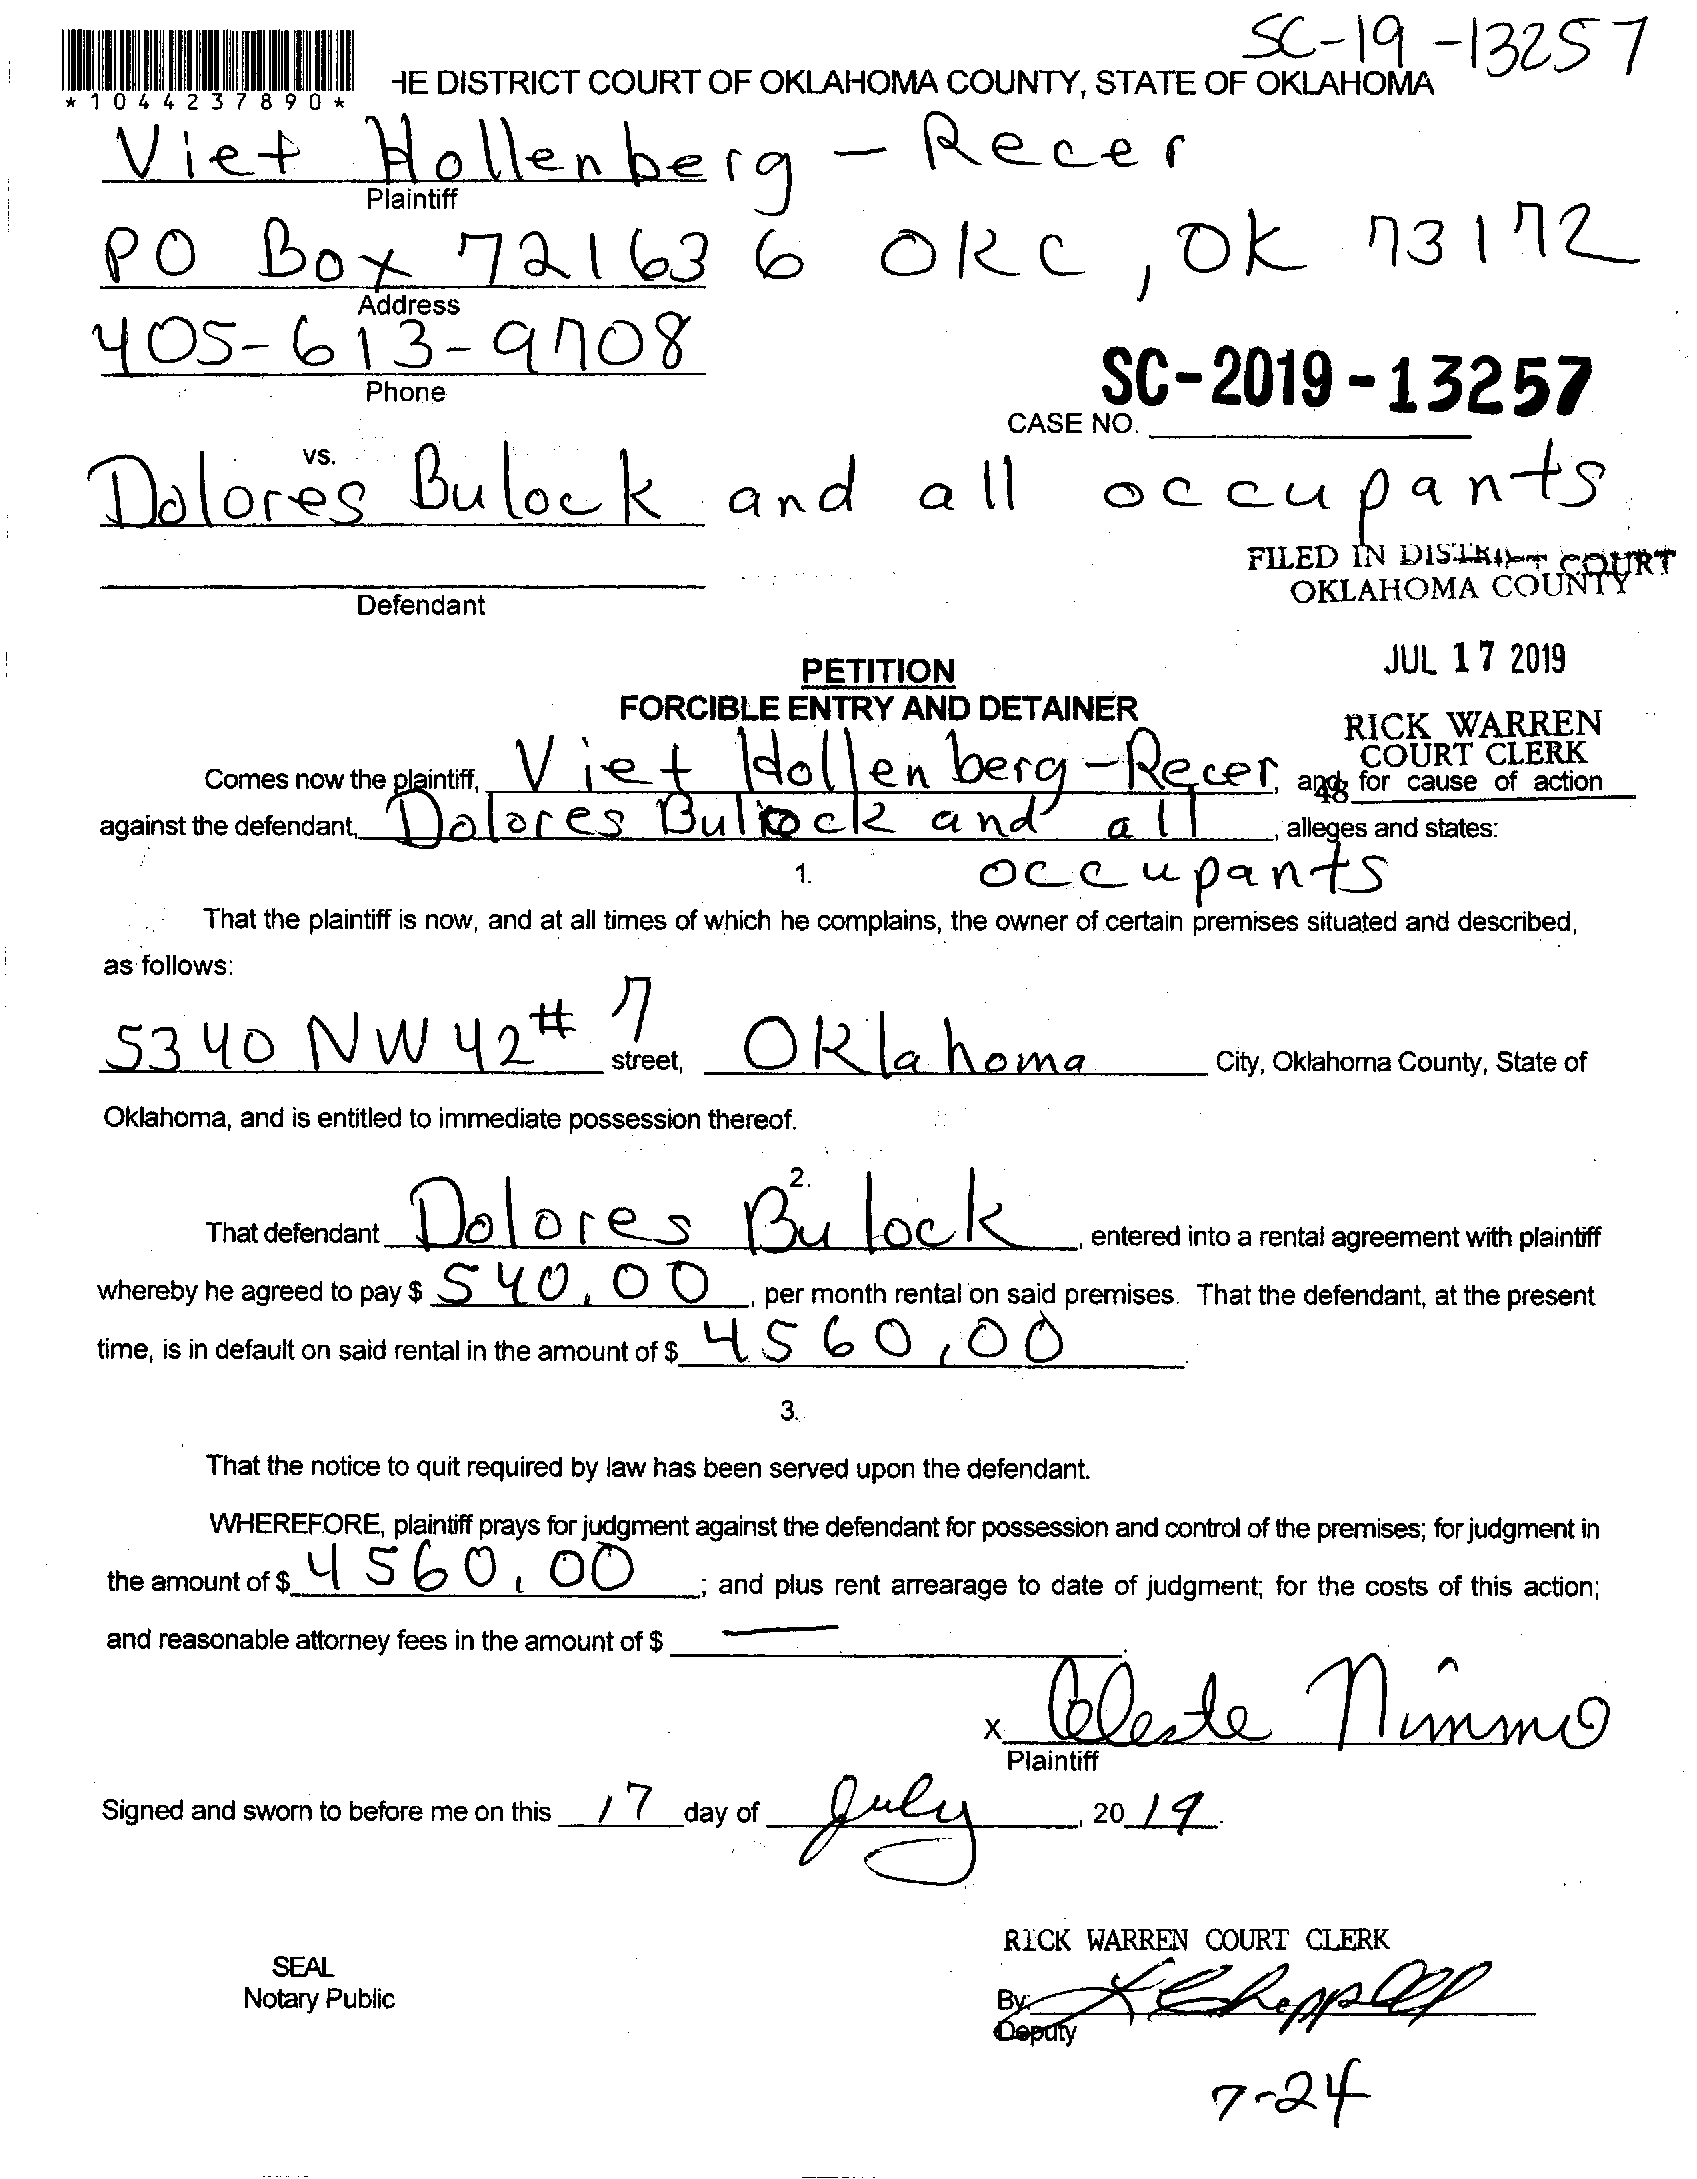 SC-19-13257
*1044237890*
HE DISTRICT COURT OF OKLAHOMA COUNTY, STATE OF OKLAHOMA
Viet Hollenberg - Recer
Plaintiff
PO Box 721636 OKC, OK 73172
Address
405-613-9708
Phone
SC-2019-13257
CASE NO.
vs.
Dolores Bulock and all occupants
FILED IN DISTRICT COURT
OKLAHOMA COUNTY
Defendant
JUL 17 2019
PETITION
FORCIBLE ENTRY AND DETAINER
RICK WARREN
COURT CLERK
48
Comes now the plaintiff, Viet Hollenberg-Recer, and for cause of action
against the defendant, Dolores Bulock and all, alleges and states:
occupants
1.
That the plaintiff is now, and at all times of which he complains, the owner of certain premises situated and described,
as follows:
5340 NW 42 # 7 street, Oklahoma City, Oklahoma County, State of
Oklahoma, and is entitled to immediate possession thereof.
2.
That defendant Dolores Bulock, entered into a rental agreement with plaintiff
whereby he agreed to pay $ 540.00, per month rental on said premises. That the defendant, at the present
time, is in default on said rental in the amount of $ 4560.00.
3.
That the notice to quit required by law has been served upon the defendant.
WHEREFORE, plaintiff prays for judgment against the defendant for possession and control of the premises; for judgment in
the amount of $ 4560.00; and plus rent arrearage to date of judgment; for the costs of this action;
and reasonable attorney fees in the amount of $ —.
x Celeste Nimmo
Plaintiff
Signed and sworn to before me on this 17 day of July, 2019.
RICK WARREN COURT CLERK
SEAL
Notary Public
By: K Chappell
Deputy
7-24